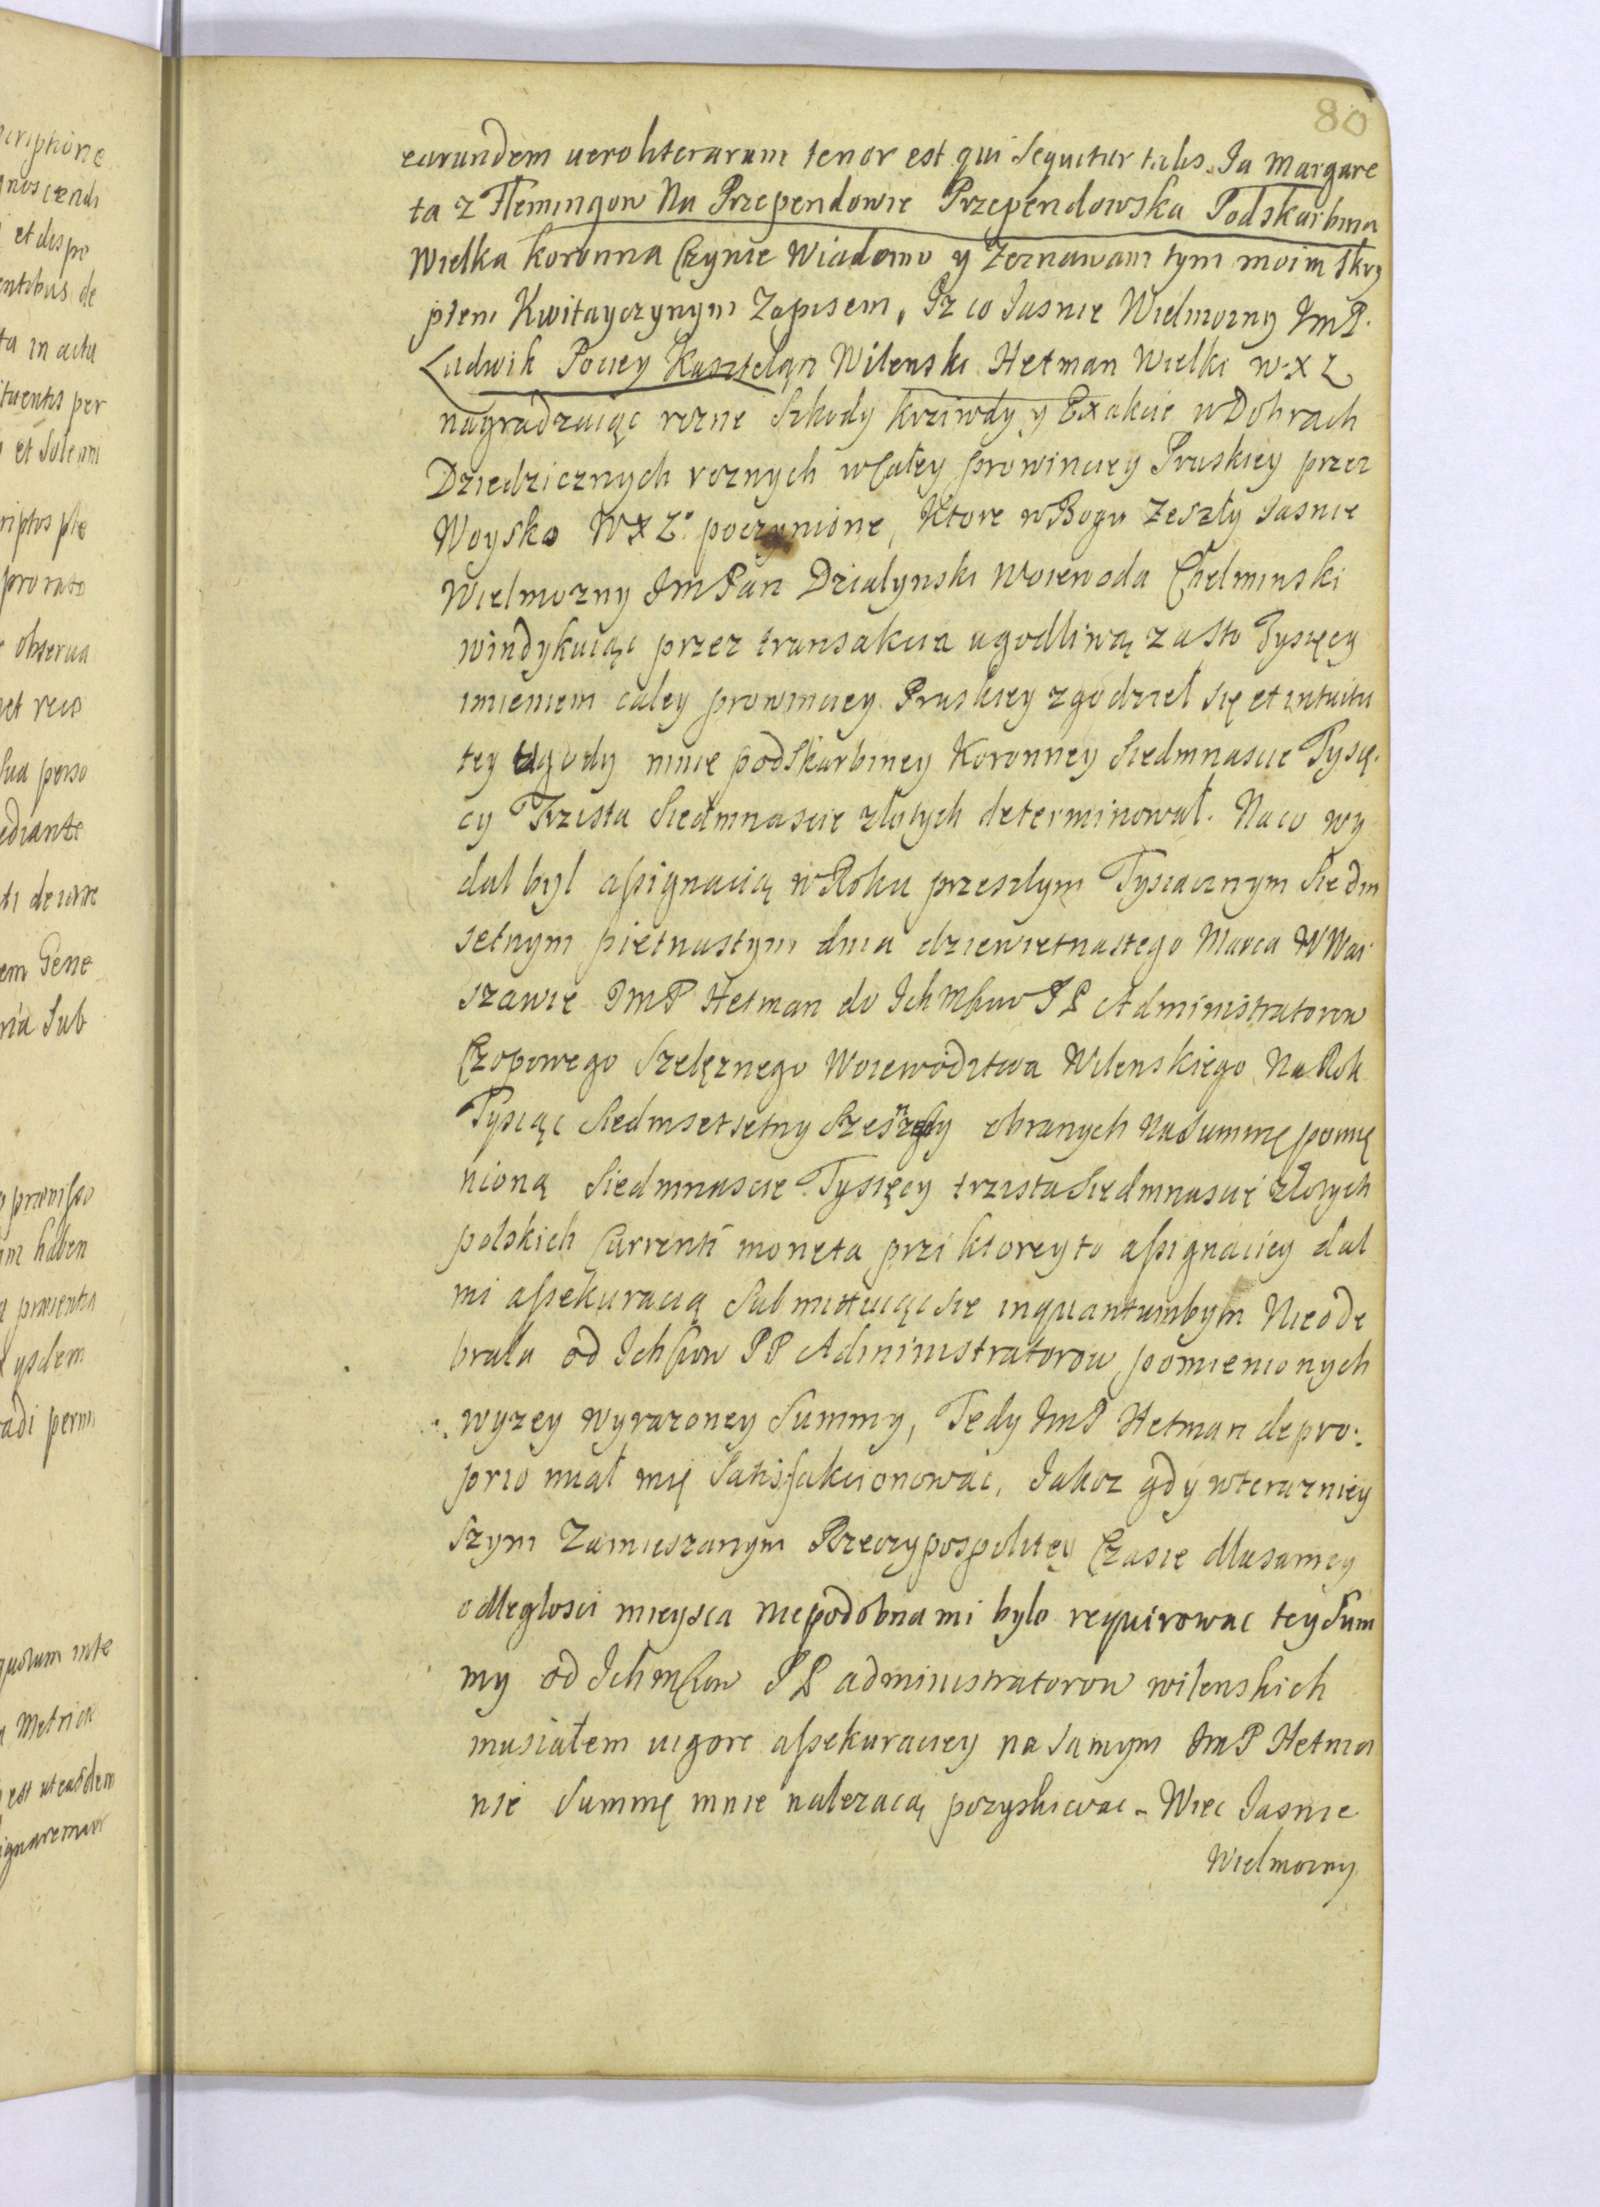 80
earundem uero literarum tenor est qui Sequitur talis. Ja Margare
ta z Flemingow Na Przependowie Przependowska Podskarbina
Wielka Koronna Czynie Wiadomo y Zeznawam tym moim Skry
ptem Kwitayczynym Zapisem, Iz co Jasnie Wielmozny JmP.
Ludwik Pociey Kaszteląn Wilenski Hetman Wielki W X L
nagradzaiąc rozne Szkody krziwdy y Exakcie w Dobrach
Dziedzicznych roznych w Całey prowincyey Pruskiey przez
Woysko W X L. poczynione, Ktore w Bogu Zeszły Jasnie
Wielmozny JmPan Dzialynski Woiewoda Chelminski
windykuiąc przez transakcia ugodliwą za sto Tysięcy
imieniem całey prowincyey Pruskiey zgodzieł się et intuitu
tey ugody mnie podskarbiney Koronney Siedmnascie Tysię-
cy Trzista Siedmnascie złotych determinował. Na co wy
dal był assignacią w Roku przeszłym Tysiącznym Siedm
setnym pietnastym dnia dziewietnastego Marca W War
szawie JmP Hetman do Ich Msciow PP Administratorow
Czopowego Szelęznego Woiewodztwa Wilenskiego Na Rok
Tysiąc Siedmsetsetny Szesnasty obranych Na Summę pomię
nioną Siedmnascie Tysięcy trzista Siedmnascie złotych
polskich Currenti moneta przi ktorey to assignaciey dal
mi assekuracią Submittuiąc sie inquantum bym Nie ode
brała od Ichsciow PP Administratorow pomienionych
wyzey wyrazoney Summy, Tedy JmP Hetman de pro:
prio miał mię Satisfakcionowac, Jakoz gdy w terazniey
szym Zamieszanym Rzeczypospolitey Czasie dla samey
odległosci mieysca niepodobna mi było requirowac tey Sum
my od Ich msciow PP administratorow wilenskich
musiałem uigore assekuraciey na Samym JmP Hetma
nie Summę mnie nalezacą pozyskiwac. Więc Jasnie
Wielmozny